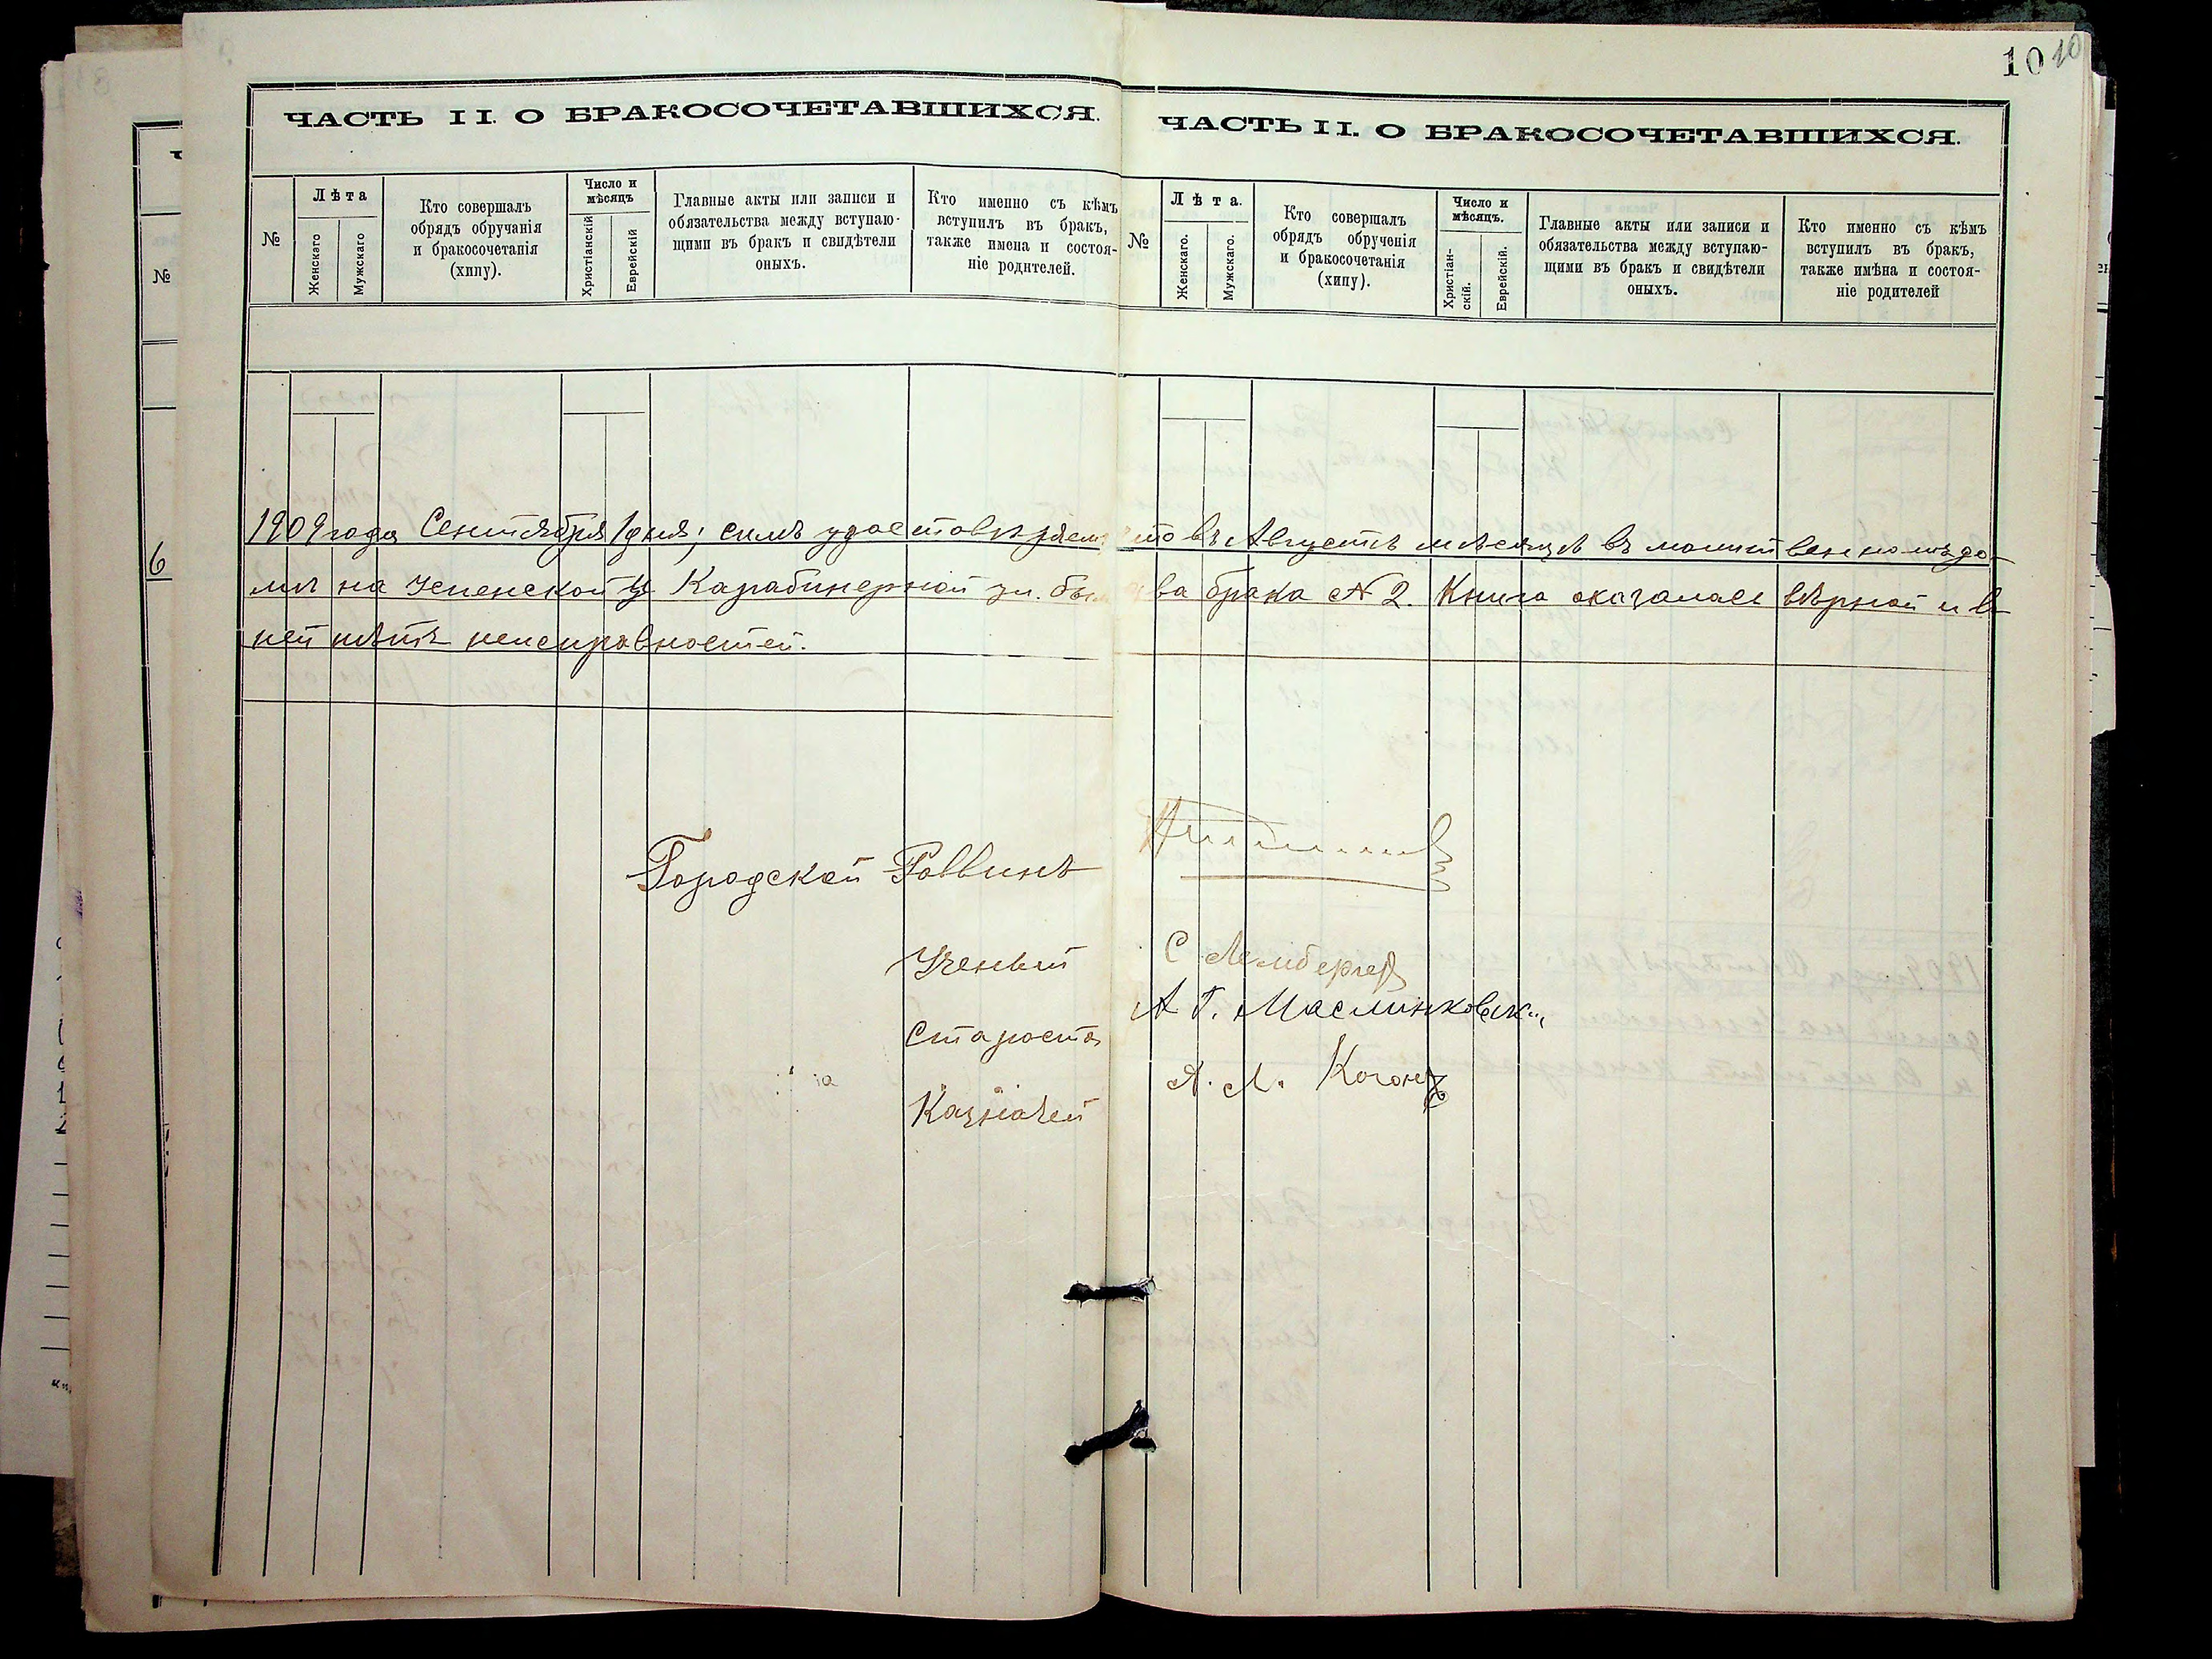 10 10
ЧАСТЬ II. О БРАКОСОЧЕТАВШИХСЯ.
№
Лѣта
Женскаго
Мужскаго
Кто совершалъ
обрядъ обручанія
и бракосочетанія
(хипу).
Число и
мѣсяцъ
Христіанскій
Еврейскій
Главные акты или записи и
обязательства между вступаю-
щими въ бракъ и свидѣтели
оныхъ.
Кто именно съ кѣмъ
вступилъ въ бракъ,
также имена и состоя-
ніе родителей.
ЧАСТЬ II. О БРАКОСОЧЕТАВШИХСЯ.
№
Лѣта.
Женскаго.
Мужскаго.
Кто совершалъ
обрядъ обрученія
и бракосочетанія
(хипу).
Число и
мѣсяцъ.
Христіан-
скій.
Еврейскій.
Главные акты или записи и
обязательства между вступаю-
щими въ бракъ и свидѣтели
оныхъ.
Кто именно съ кѣмъ
вступилъ въ бракъ,
также имѣна и состоя-
ніе родителей
№
6
1909 года Сентября 1 дня; симъ удостовѣряемъ что въ Августѣ мѣсяцѣ въ молитвенномъ до-
мѣ на Успенской Карабинерной ул. было два брака № 2. Книга оказалась вѣрной и въ
ней нѣтъ неисправностей.
Городской Раввинъ
Ученый С Лембергеръ
Староста А Г. Маслинковск
Казначей А. Л. Коганъ